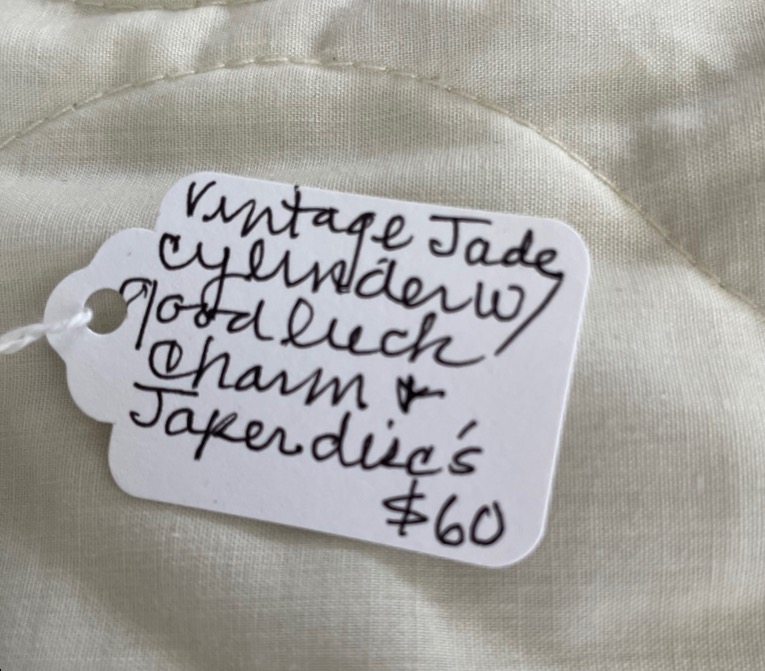 Vintage Jade
cylinder w/
good luck
Charm &
Japer disc's
$60